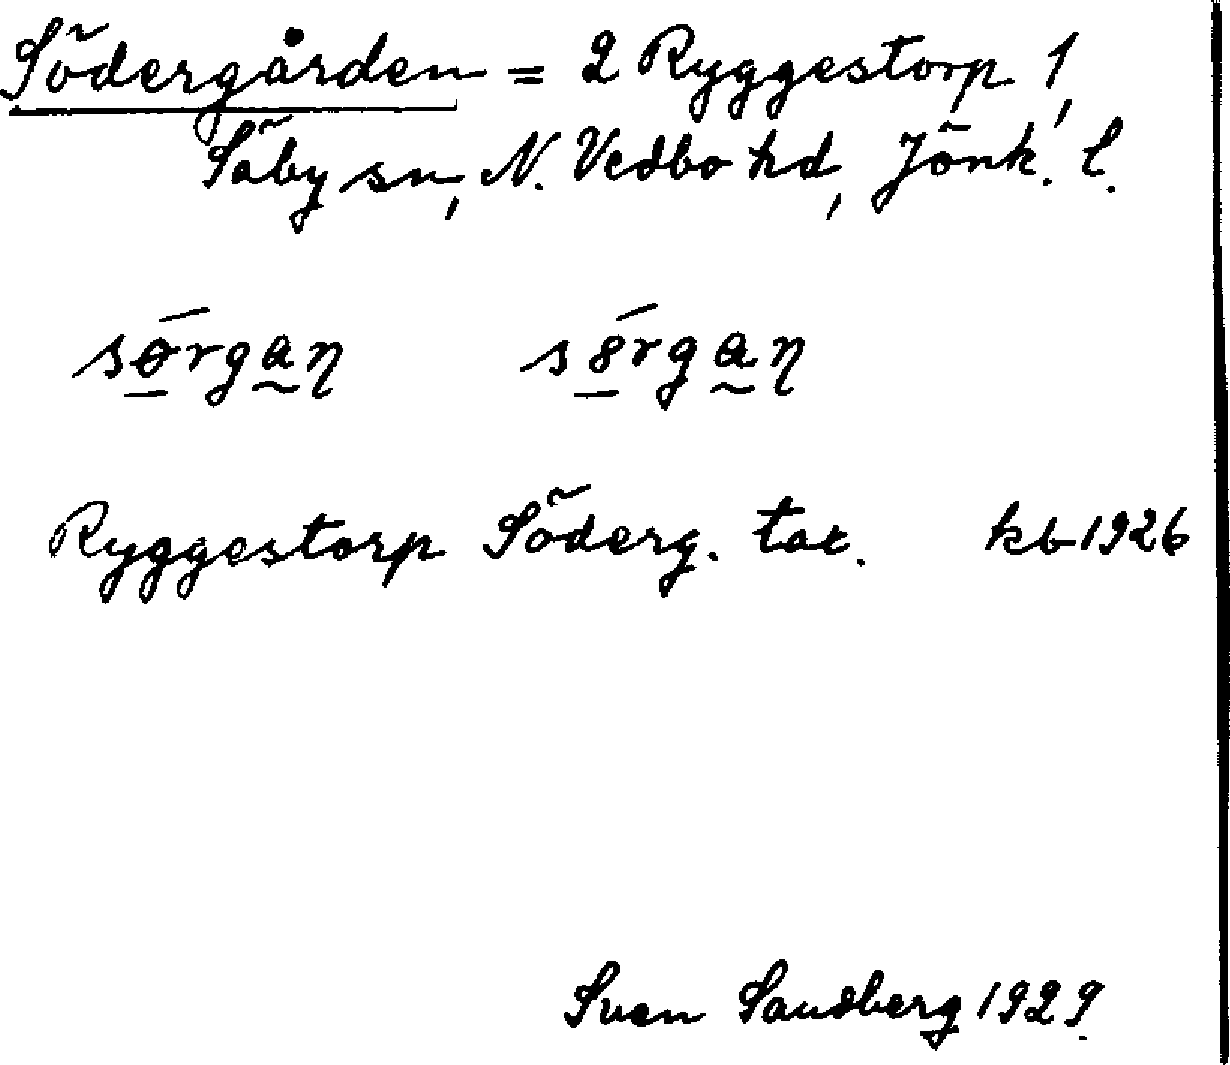 Södergården = 2 Ryggestorp 1,
Säby sn, N. Vedbo hd, Jönk. l.
Ryggestorp Söderg. kb 1926
Sven Sandberg 1929